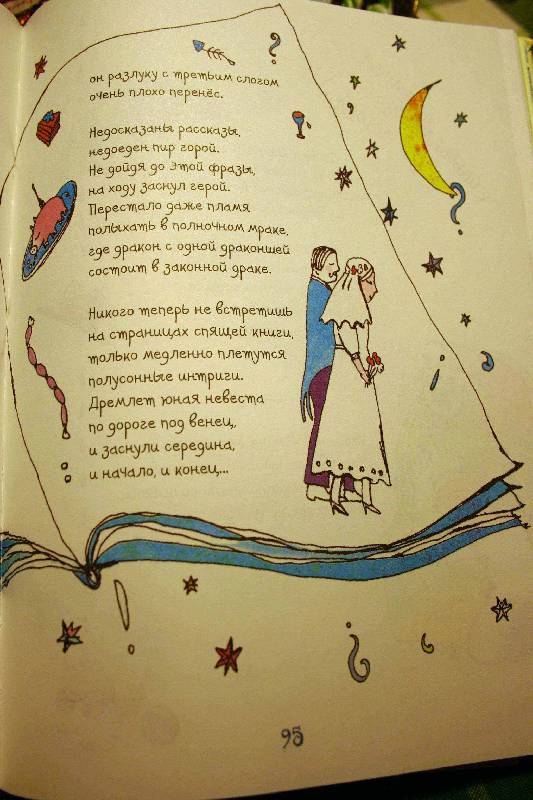 он разлуку с третьим слогом
очень плохо перенёс.
Недосказаны рассказы,
недоеден пир горой.
Не дойдя до этой фразы,
на ходу заснул герой.
Перестало даже пламя
полыхать в полночном мраке,
где дракон с одной драконшей
состоит в законной драке.
Никого теперь не встретишь
на страницах спящей книги,
только медленно плетутся
полусонные интриги.
Дремлет юная невеста
по дороге под венец,
и заснули середина,
и начало, и конец,..
95